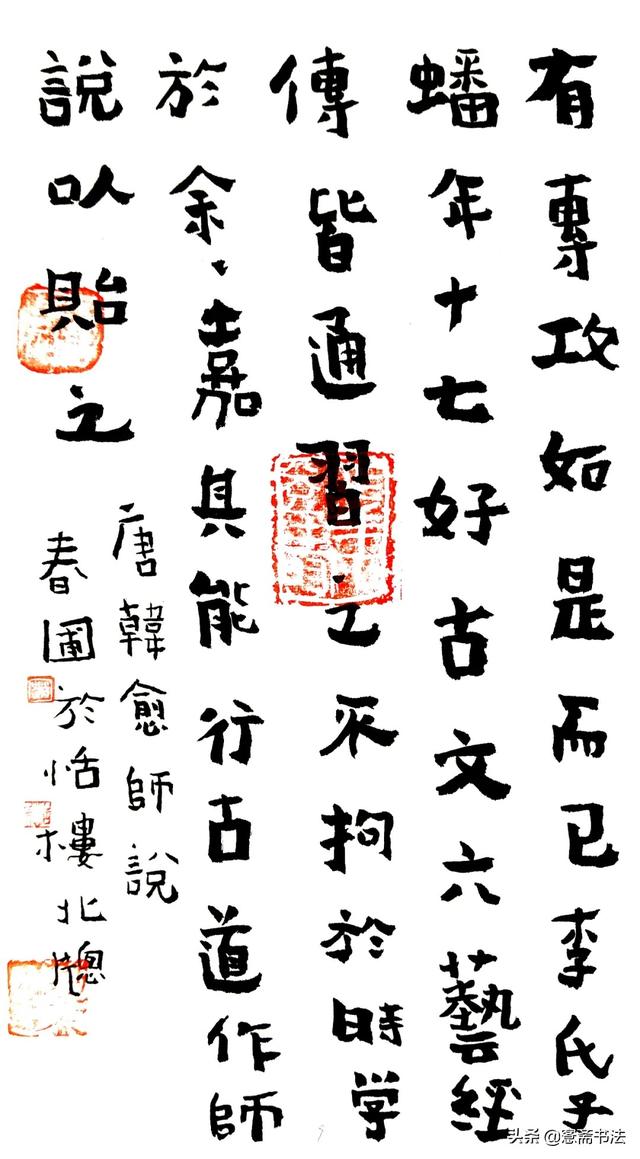 有專攻如是而已李氏子
蟠年十七好古文六藝經
傳皆通習之不拘於時学
於余、嘉其能行古道作師
說㕥貽之
唐韓愈師說
春圃於恬樓北牕
头条 @愙斋书法